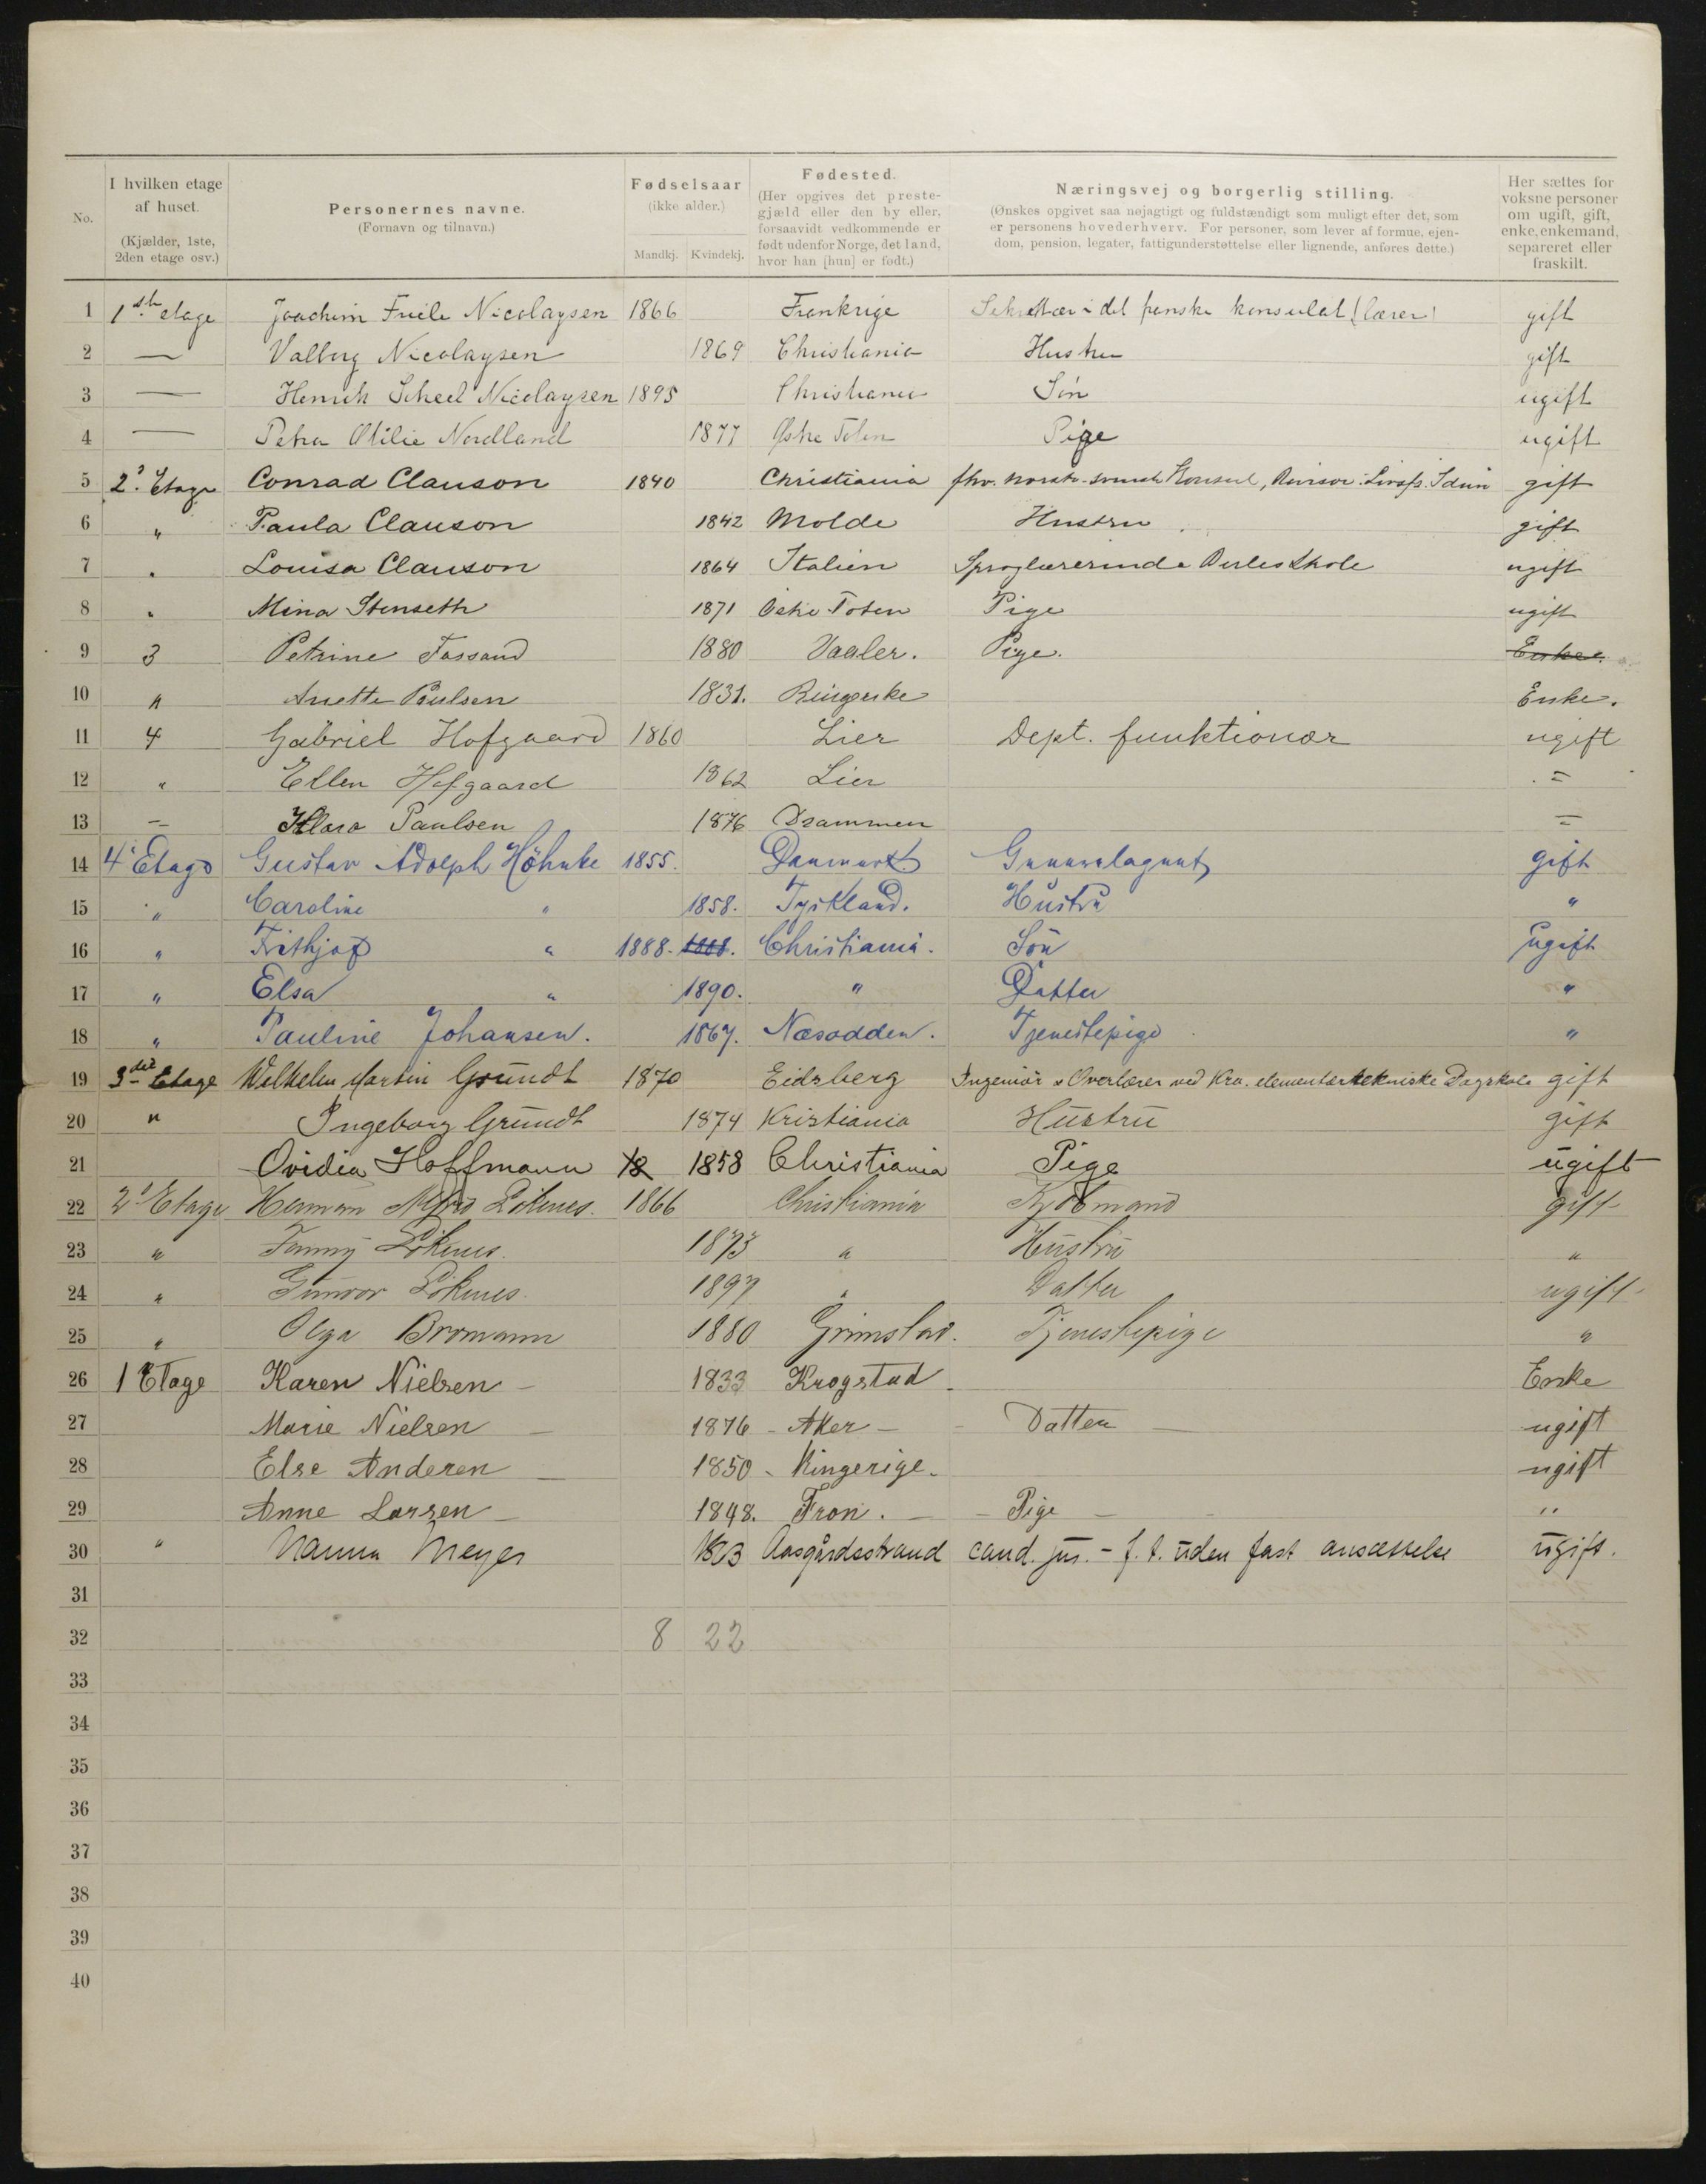 No.
I hvilken etage af huset. (Kjælder, 1ste, 2den etage osv.)
Personernes navne. (Fornavn og tilnavn.)
Fødselsaar (ikke alder.) Mandkj. Kvindekj.
Fødested. (Her opgives det prestegjæld eller den by eller, forsaavidt vedkommende er født udenfor Norge, det land, hvor han [hun] er født.)
Næringsvej og borgerlig stilling. (Ønskes opgivet saa nøjagtigt og fuldstændigt som muligt efter det, som er personens hovederhverv. For personer, som lever af formue, ejendom, pension, legater, fattigunderstøttelse eller lignende, anføres dette.)
Her sættes for voksne personer om ugift, gift, enke, enkemand, separeret eller fraskilt.
1 1ste etage Joachim Friele Nicolaysen 1866 Frankrige Sekretær i det franske konsulat (lærer) gift
2 — Valborg Nicolaysen 1869 Christiania Hustru gift
3 — Henrik Scheel Nicolaysen 1895 Christiania Søn ugift
4 — Petra Otilie Nordland 1877 Østre Toten Pige ugift
5 2. Etage Conrad Clauson 1840 Christiania fhv. norsk-svensk Konsul, Revisor i Livsf. Idun gift
6 " Paula Clauson 1842 Molde Hustru gift
7 " Louisa Clauson 1864 Italien Sproglærerinde Berles Skole ugift
8 " Mina Stenseth 1871 Östre Toten Pige ugift
9 3 Petrine Fossand 1880 Vaaler. Pige. Enke.
10 " Anette Paulsen 1831. Ringerike Enke.
11 4 Gabriel Hofgaard 1860 Lier Dept. funktionær ugift
12 " Ellen Hofgaard 1862 Lier =
13 = Klara Paulsen 1876 Drammen =
14 4 Etage Gustav Adolph Höhnke 1855. Danmark Generalagent gift
15 " Caroline " 1858. Tyskland. Hustru "
16 " Frithjof " 1888. 1888. Christiania. Søn Ugift
17 " Elsa " 1890. " Datter "
18 " Pauline Johansen. 1867. Næsodden. Tjenestepige "
19 3die Etage Wilhelm Martin Grundt 1870 Eidsberg Ingeniør o Overlærer ved Kra. elementærtekniske Dagskole gift
20 " Ingeborg Grundt 1874 Kristiania Hustru gift
21 Ovidia Hoffmann 18 1858 Christiania Pige ugift
22 2 Etage Herman Alfred Lökenes. 1866 Christiania Kjöbmand gift
23 " Fanny Lökenes. 1873 " Hustru "
24 " Gunvor Lökenes. 1897 " Datter ugift
25 " Olga Bromann 1880 Grimstad. Tjenestepige "
26 1 Etage Karen Nielsen 1833 Krogstad Enke
27 Marie Nielsen 1876 Aker Datter ugift
28 Else Anderen 1850 Ringerige. ugift
29 Anne Larsen 1848. Fron. Pige "
30 " Nanna Meyer 1873 Aasgårdsstrand cand. jur. - f. t. uden fast ansættelse ugift.
31
32 8 22
33
34
35
36
37
38
39
40